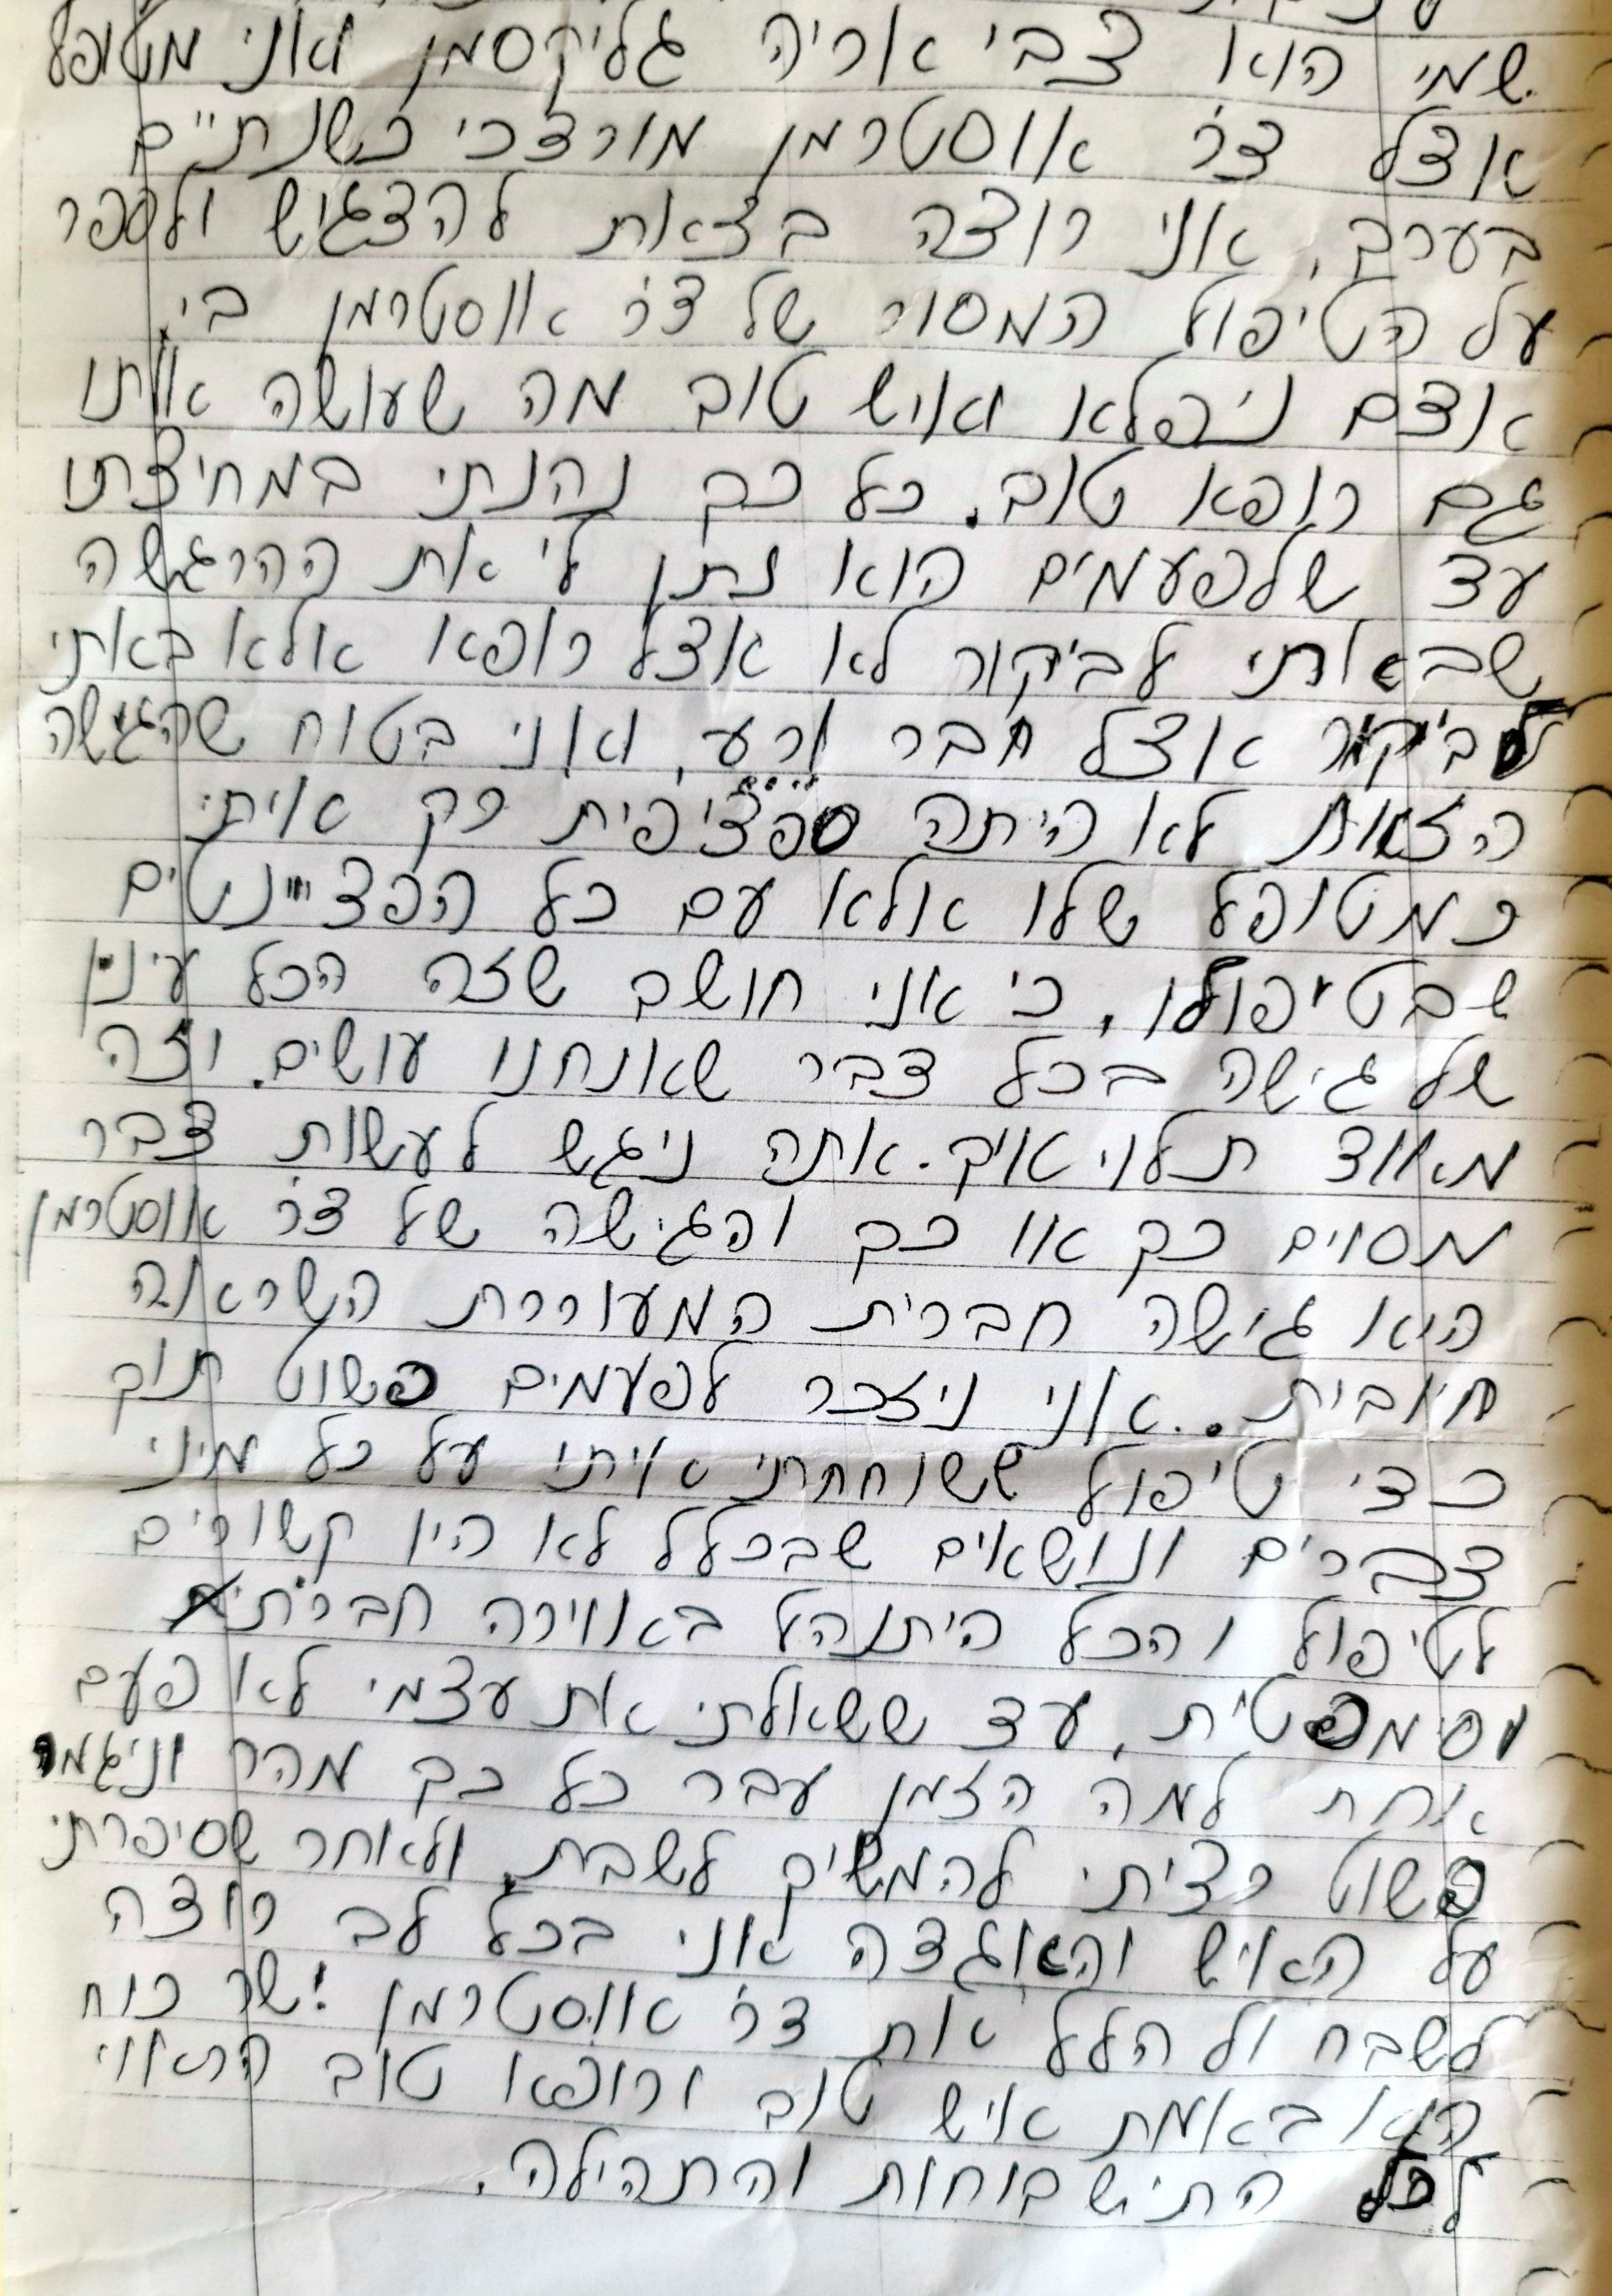 שמי הוא צבי אריה גליקסמן ואני מטופל
אצל ד״ר אוסטרמן מורדכי כשנתיים
בערך, אני רוצה בזאת להדגיש ולספר
על הטיפול המסור של ד״ר אוסטרמן בי,
אדם ניפלא ואיש טוב מה שעושה אותו
גם רופא טוב. כל כך נהנתי במחיצתו
עד שלפעמים הוא נתן לי את ההרגשה
שבאתי לביקור לא אצל רופא אלא באתי
לביקור אצל חבר ורע, ואני בטוח שהגישה
הזאת לא היתה ספציפית רק איתי
כמטופל שלו אלא עם כל הפציינטים
שבטיפולו, כי אני חושב שזה הכל עינין
של גישה בכל דבר שאנחנו עושים. וזה
מאוד תלוי איך אתה ניגש לעשות דבר
מסוים כך או כך והגישה של ד״ר אוסטרמן
היא גישה חברית המעוררת השראה
חיובית.. אני ניזכר לפעמים פשוט תוך
כדי טיפול ששוחחתי איתו על כל מיני
דברים ונושאים שבכלל לא היו קשורים
לטיפול והכל היתנהל באוירה חברית
וסימפטית, עד ששאלתי את עצמי לא פעם
אחת למה הזמן עבר כל כך מהר וניגמר
פשוט רציתי להמשיך לשבת, ולאחר שסיפרתי
על האיש והאגדה אני בכל לב רוצה
לשבח ול הלל את ד״ר אוסטרמן ישר כוח
הוא באמת איש טוב ורופא טוב הראוי
לכל התישבוחות והתהילה.